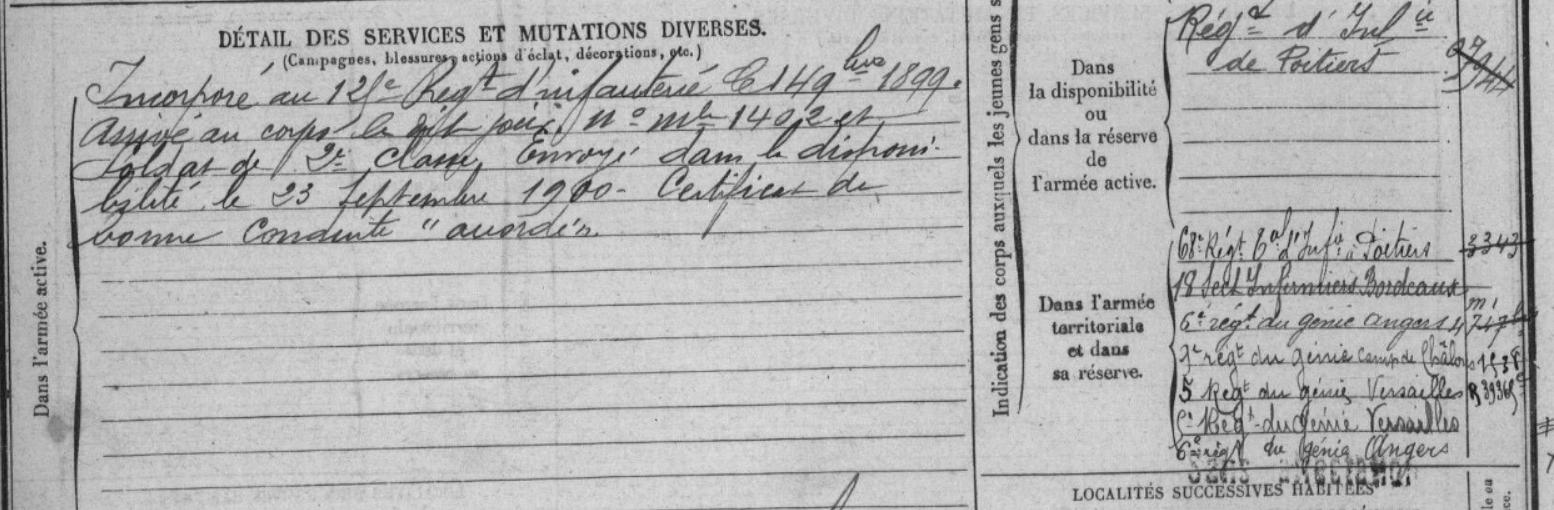 DÉTAIL DES SERVICES ET MUTATIONS DIVERSES.
(Campagnes, blessures, actions d'éclat, décorations, etc.)
Incorporé au 125e Régt d'infanterie le 14 9bre 1899.
Arrivé au corps le dit jour, No mle 1402 et
soldat de 2e classe. Envoyé dans la disponi-
bilité le 23 Septembre 1900 - Certificat de
bonne Conduite "accordé".
Dans l'armée active.
Indication des corps auxquels les jeunes gens s
Dans
la disponibilité
ou
dans la réserve
de
l'armée active.
Régt d'Infie
de Poitiers
Dans l'armée
territoriale
et dans
sa réserve.
68e Régt d'Infie à Poitiers 3343
18 Sect Infirmiers Bordeaux
6e régt du génie Angers
9e regt du génie camp de Châlons
5 Regt du génie Versailles
Régt du Génie Versailles
6e régt du génie Angers
LOCALITÉS SUCCESSIVES HABITÉES